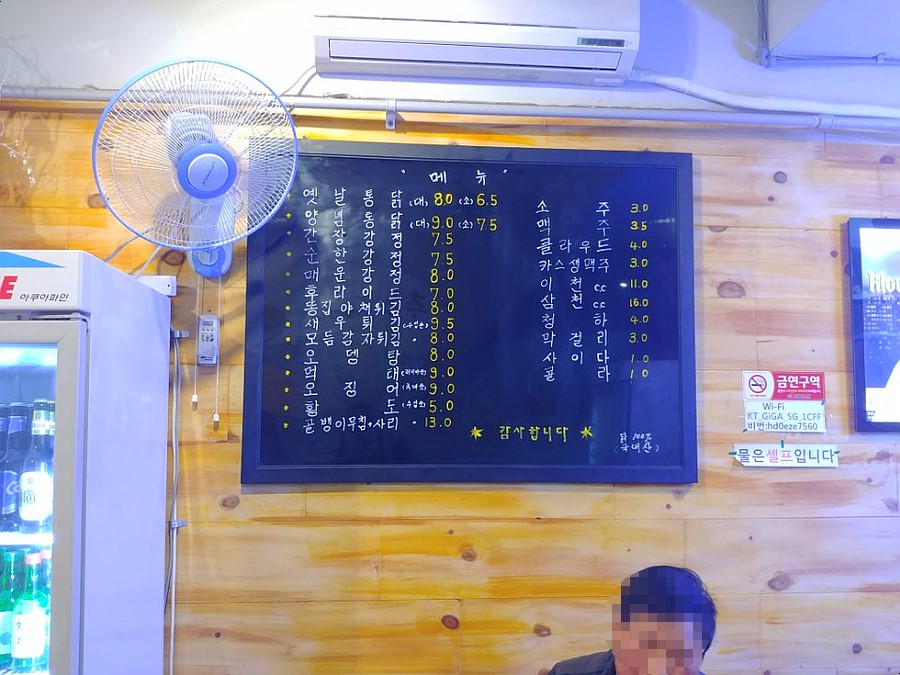 " 메 뉴 "
옛 날 통 닭 (대) 8.0 (소) 6.5
양 념 통 닭 (대) 9.0 (소) 7.5
간 장 강 정 7.5
순 한 강 정 7.5
매 운 강 정 8.0
후 라 이 드 7.0
똥 집 야 채 튀 김 8.0
새 우 튀 김 (수입산) 9.5
모 듬 감 자 튀 김 8.0
오 뎅 탕 8.0
먹 태 (러시아산) 9.0
오 징 어 9.0
황 도 (수입산) 5.0
골뱅이무침+사리 13.0
소 주 3.0
맥 주 3.5
클 라 우 드 4.0
카스생맥주 3.0
이 천 cc 11.0
삼 천 cc 16.0
청 하 4.0
막 걸 리 3.0
사 이 다 1.0
콜 라 1.0
감사합니다
닭 100%
(국내산)
E 아쿠아파인
금연구역
Wi-Fi
KT_GiGA_5G_1CFF
비번:hd0eze7560
물은셀프입니다